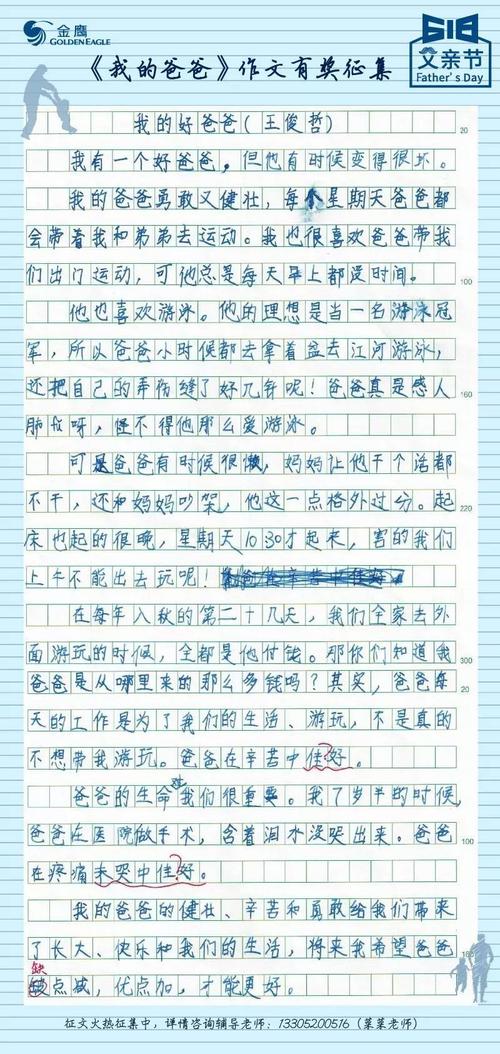 金鹰
GOLDEN EAGLE
618
父亲节
Father's Day
《我的爸爸》作文有奖征集
我的好爸爸(王俊哲)
20
我有一个好爸爸,但他有时候变得很坏。
我的爸爸勇敢又健壮,每个星期天爸爸都
会带着我和弟弟去运动。我也很喜欢爸爸带我
们出门运动,可他总是每天早上都没时间。
100
他也喜欢游泳。他的理想是当一名游泳冠
军,所以爸爸小时候都去拿着盆去江河游泳,
还把自己的弄伤缝了好几针呢!爸爸真是感人
160
肺 呀,怪不得他那么爱游泳。
可是爸爸有时候很懒,妈妈让他干个活都
不干,还和妈妈吵架,他这一点格外过分。起
220
床也起的很晚,星期天10:30才起来,害的我们
上午不能出去玩呢!
在每年入秋的第二十几天,我们全家去外
面游玩的时候,全都是他付钱。那你们知道我
300
爸爸是从哪里来的那么多钱吗?其实,爸爸每
20
天的工作是为了我们的生活、游玩,不是真的
不想带我游玩。爸爸在辛苦中佳好。
?
爸爸的生命让我们很重要。我7岁半的时候,
爸爸在医院做手术,含着泪水没哭出来。爸爸
100
在疼痛未哭中佳好。
?
我的爸爸的健壮、辛苦和勇敢给我们带来
了长大、快乐和我们的生活,将来我希望爸爸
160
缺
缺点减,优点加,才能更好。
征文火热征集中,详情咨询辅导老师:13305200516(菜菜老师)